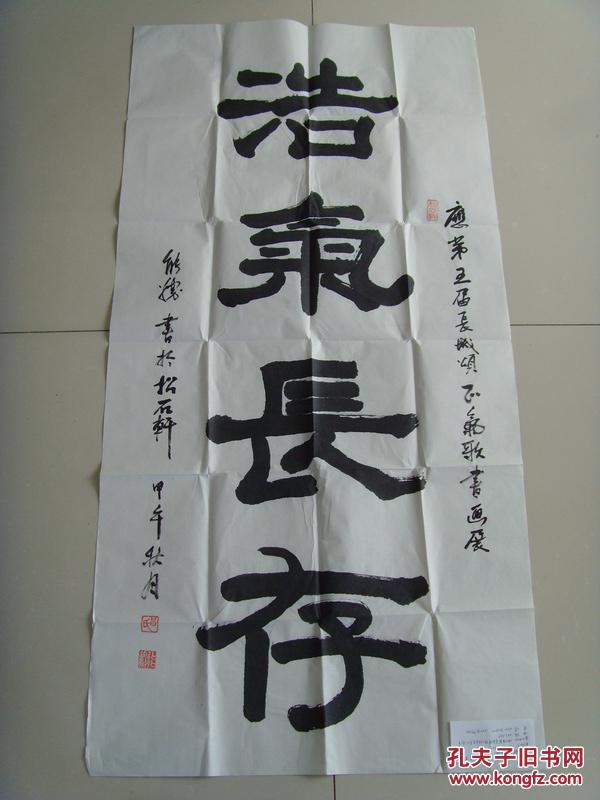 應第五届長城頌正氣歌書画展
浩氣長存
書於松石軒 甲午秋月
孔夫子旧书网
www.kongfz.com